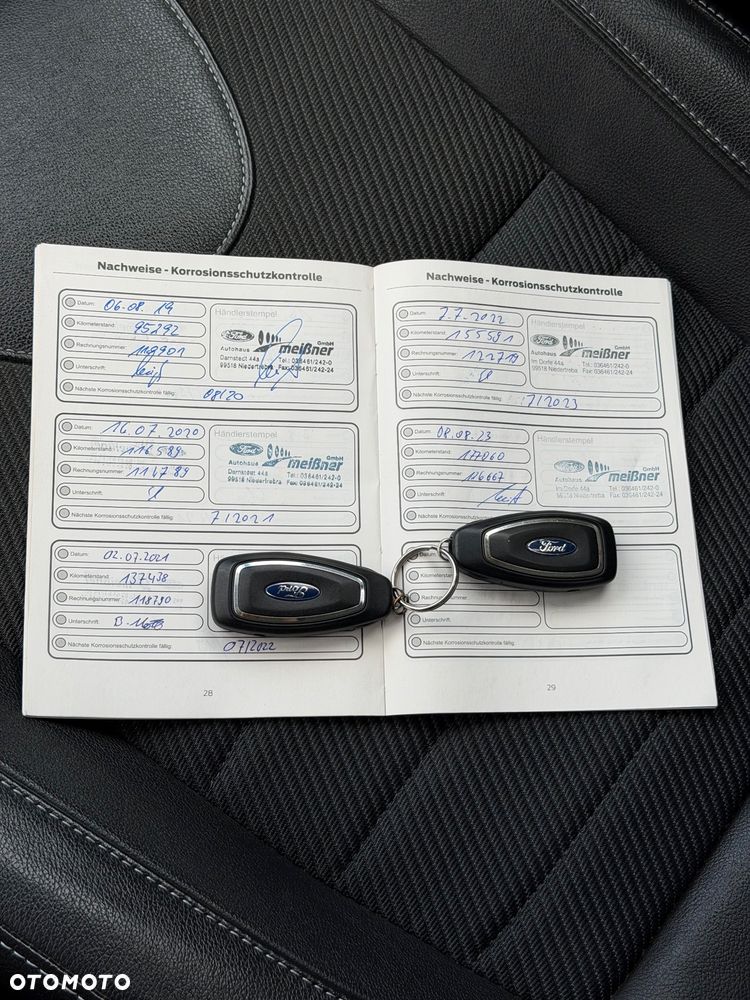 Nachweise - Korrosionsschutzkontrolle
Datum: 06.08.19
Kilometerstand: 95292
Rechnungsnummer:
Unterschrift:
Nächste Korrosionsschutzkontrolle fällig: 08/20
Händlerstempel
Ford
GmbH
Autohaus meißner
Darnstedt 44a Tel.: 036461/242-0
99518 Niedertrebra Fax: 036461/242-24
Datum: 16.07.2020
Kilometerstand: 116589
Rechnungsnummer: 114789
Unterschrift:
Nächste Korrosionsschutzkontrolle fällig: 7/2021
Händlerstempel
Ford
GmbH
Autohaus meißner
Darnstedt 44a Tel.: 036461/242-0
99518 Niedertrebra Fax: 036461/242-24
Datum: 02.07.2021
Kilometerstand: 137438
Rechnungsnummer: 118790
Unterschrift:
Nächste Korrosionsschutzkontrolle fällig: 07/2022
28
Nachweise - Korrosionsschutzkontrolle
Datum: 7.7.2022
Kilometerstand: 155591
Rechnungsnummer: 122719
Unterschrift:
Nächste Korrosionsschutzkontrolle fällig: 7/2023
Händlerstempel
Ford
GmbH
Autohaus meißner
Im Dorfe 44a Tel.: 036461/242-0
99518 Niedertrebra Fax: 036461/242-24
Datum: 08.08.23
Kilometerstand: 177060
Rechnungsnummer: 126667
Unterschrift:
Nächste Korrosionsschutzkontrolle fällig:
Händlerstempel
Ford
GmbH
Autohaus meißner
Im Dorfe 44a Tel.: 036461/242-0
99518 Niedertrebra Fax: 036461/242-24
Kilometerstand:
Rechnungsnummer:
Unterschrift:
Nächste Korrosionsschutzkontrolle fällig:
29
Ford
Ford
OTOMOTO